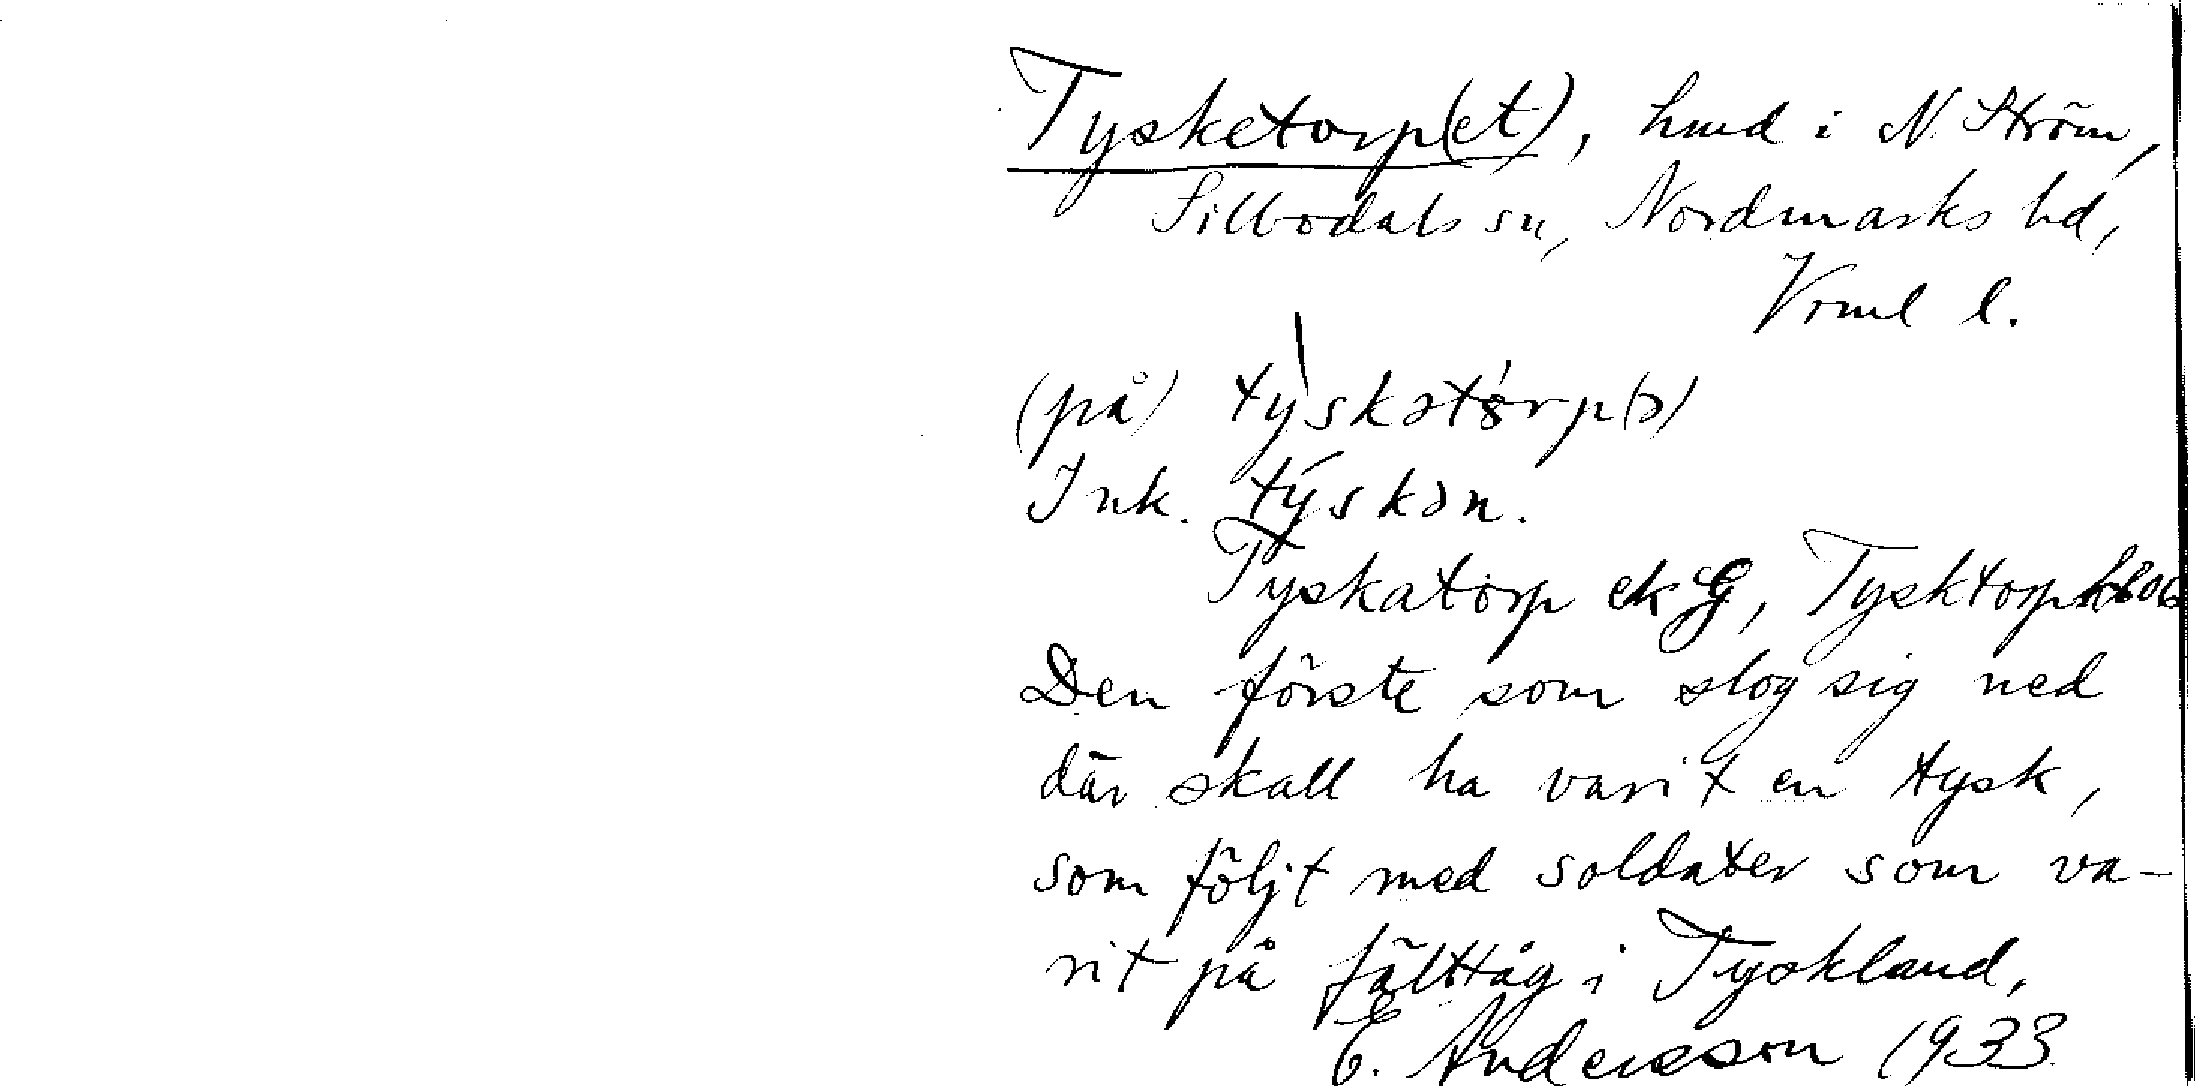 Tysketorp(et), hmd i N. Ström,
Silbodals sn, Nordmarks hd,
Vrml l.
(på) týskətórp(ə)
Ink. týskən.
Tyskatorp ek G, Tysktorp
Den förste som slog sig ned
där skall ha varit en tysk,
som följt med soldater som va-
rit på fälttåg i Tyskland,
E. Andersson 1933